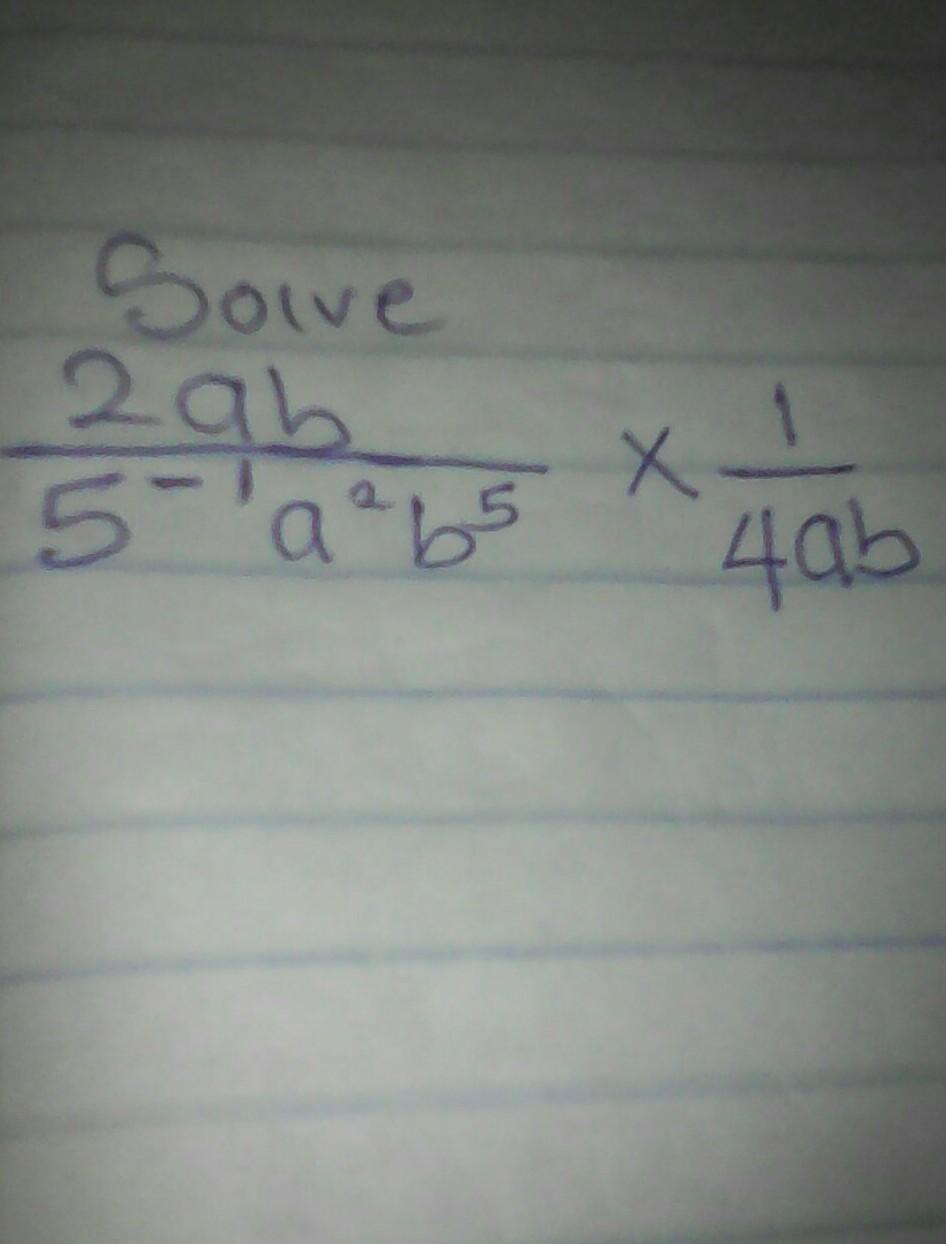 Solve
2ab/5⁻¹a²b⁵ × 1/4ab